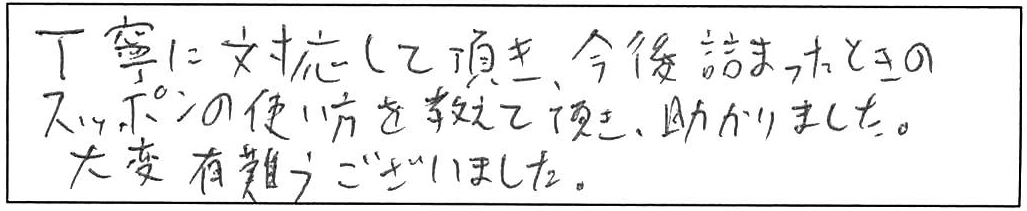 丁寧に対応して頂き、今後詰まったときの
スッポンの使い方を教えて頂き、助かりました。
大変有難うございました。